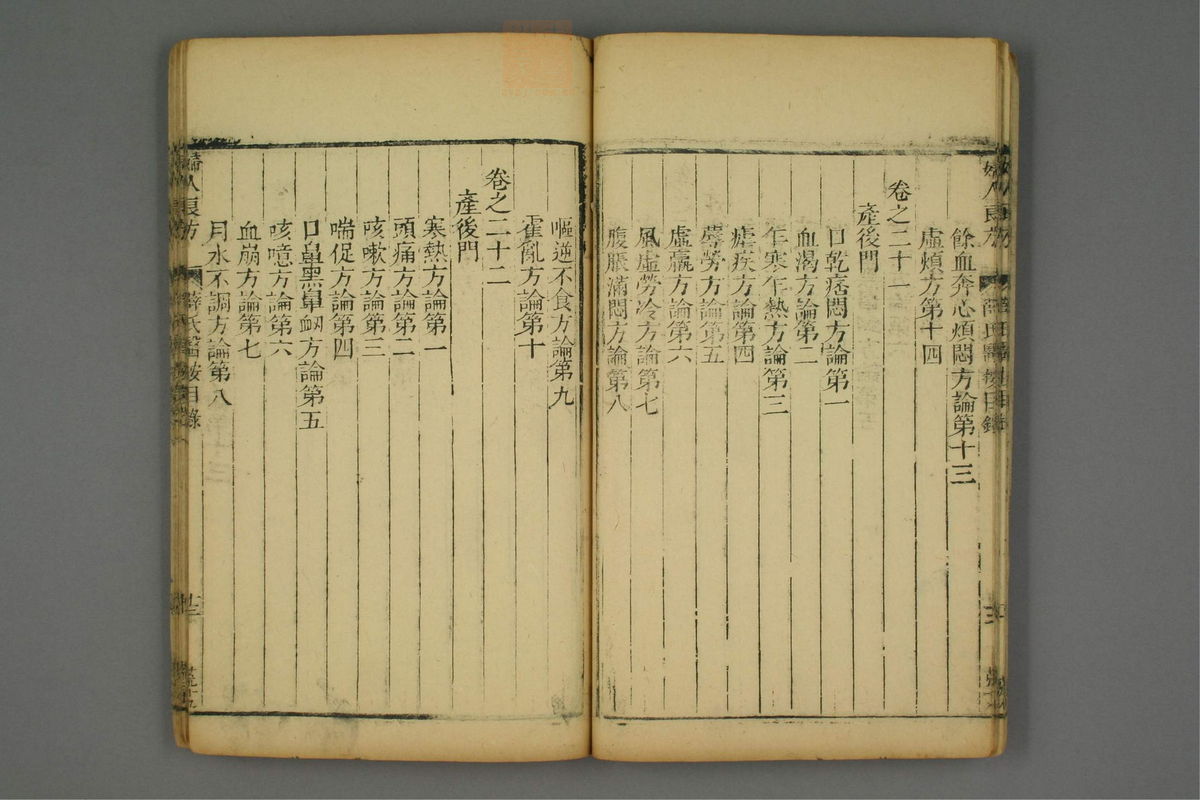 餘血奔心煩悶方論第十三
虛煩方第十四
卷之二十一
產後門
口乾痞悶方論第一
血渴方論第二
乍寒乍熱方論第三
瘧疾方論第四
蓐勞方論第五
虛羸方論第六
風虛勞冷方論第七
腹脹滿悶方論第八
嘔逆不食方論第九
霍亂方論第十
卷之二十二
產後門
寒熱方論第一
頭痛方論第二
咳嗽方論第三
喘促方論第四
口鼻黑鼻衂方論第五
咳噫方論第六
血崩方論第七
月水不調方論第八
婦人良方
薛氏醫按目錄